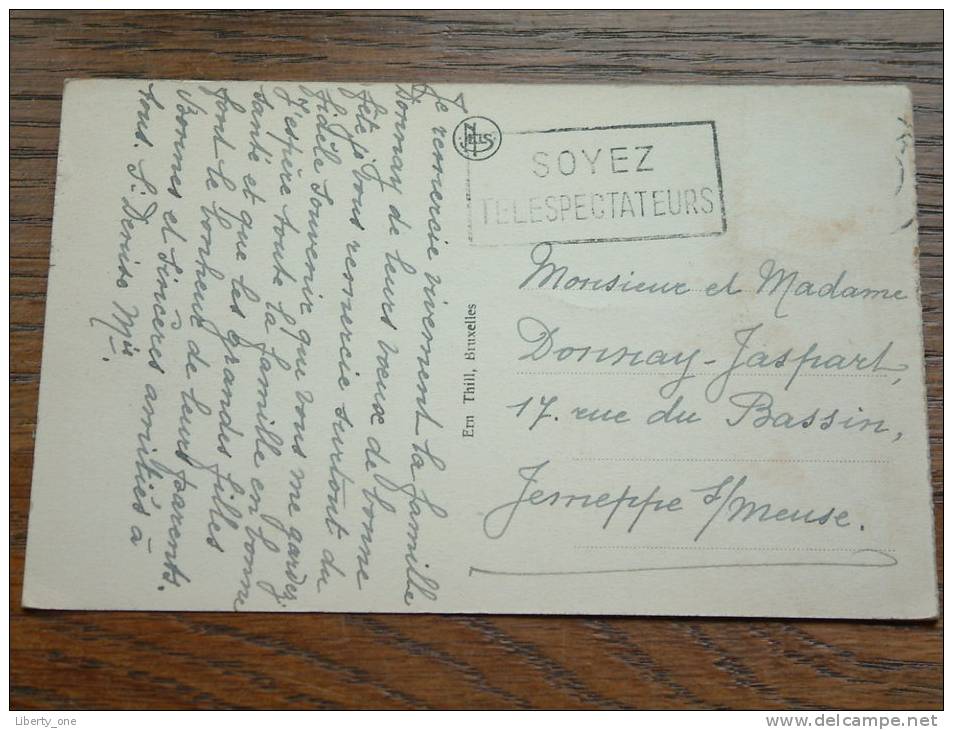 Je remercie vivement la famille
Donnay de leurs vœux de bonne
fête, je vous remercie surtout du
fidèle souvenir que vous me gardez,
J'espère toute la famille en bonne
santé et que les grandes filles
font le bonheur de leurs parents.
Bonnes et sincères amitiés à
tous. Sr Denise Mie
NELS
Ern Thill, Bruxelles
SOYEZ
TELESPECTATEURS
Monsieur et Madame
Donnay-Jaspart,
17. rue du Bassin,
Jemeppe s/Meuse.
Liberty_one
www.delcampe.net